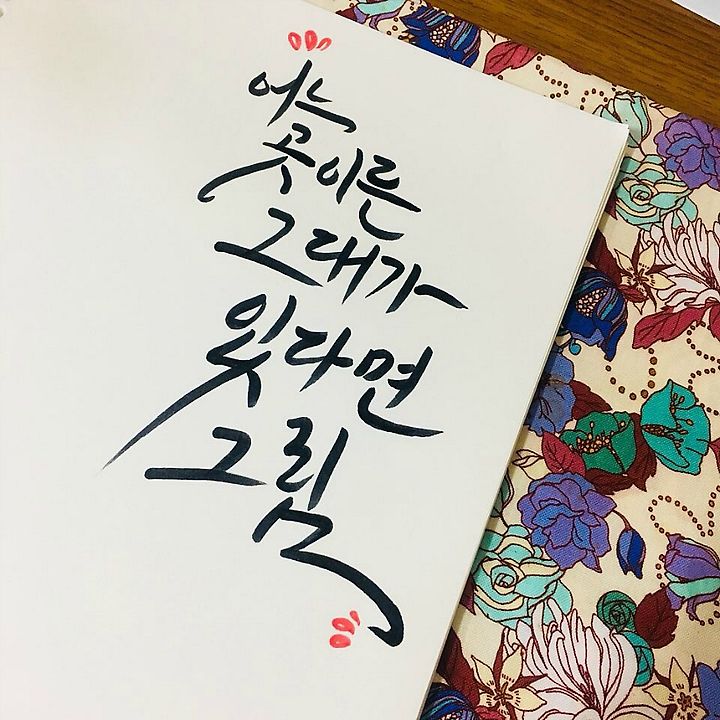 어느
곳이든
그대가
있다면
그림